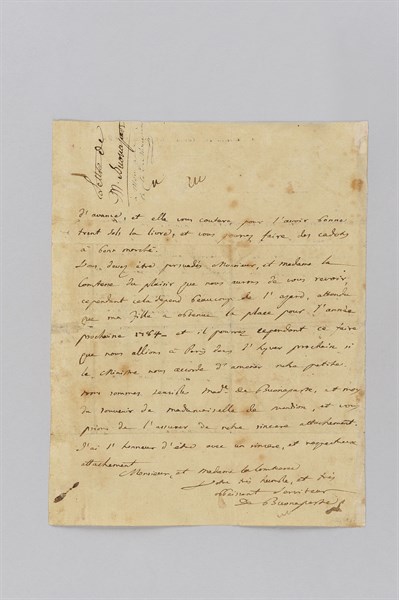 Lettre de
M. Buonaparte
d'avance, et elle vous coutera, pour l'avoir bonne
trent sols la livre, et vous pourrez faire des cadots
a bon marché.
Vous devez être persuadés Monsieur, et madame la
Comtesse du plaisir que nous aurons de vous revoir,
cependant cela depend beaucoup de l'azard, attendu
que ma fille a obtenu la place pour l'année
prochaine 1784 et il pourroit cependant ce faire
que nous allions à Paris dans l'hyver prochain si
le Ministre nous accorde d'amener notre petite.
nous sommes sensibles Mad.e de Buonaparte, et moy
du souvenir de mademoiselle de, et vous
prions de l'assurer de notre sincere attachement.
J'ai l'honneur d'être avec un sincere, et respectueux
attachement
Monsieur, et Madame la Comtesse
Votre très humble, et très
obeissant Serviteur
De Buonaparte